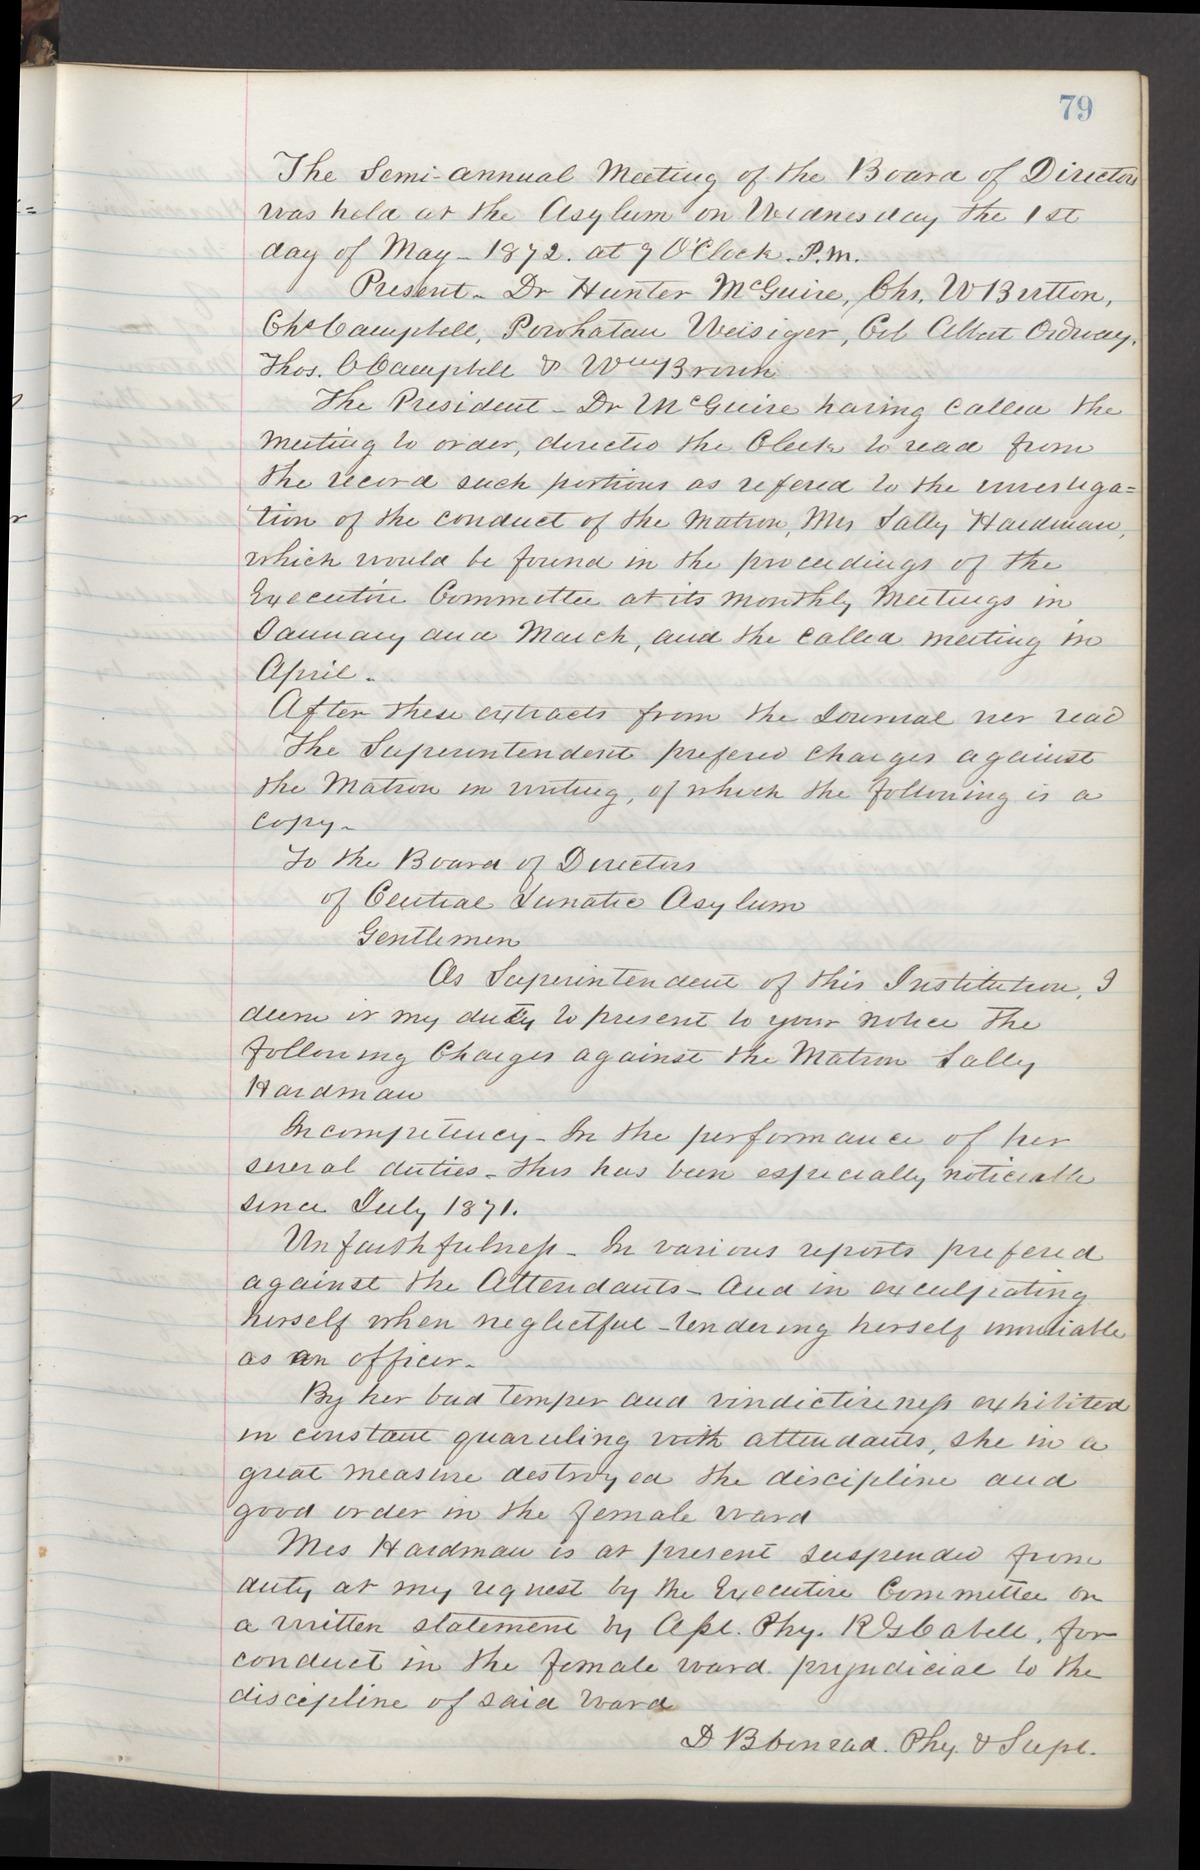 79
The Semi-annual Meeting of the Board of Directors
was held at the Asylum on Wednesday the 1st
day of May - 1872. at 7 O'Clock. P.m.
Present - Dr Hunter McGuire, Chs. W Britton,
Chs Campbell, Powhatan Weisiger, Col Albert Ordway,
Thos. C Campbell & Wm Brown
The President - Dr McGuire having called the
meeting to order, directed the Clerk to read from
the record such portions as refered to the investiga=
tion of the conduct of the Matron, Mrs Sally Hardman,
which would be found in the proceedings of the
Executive Committee at its monthly Meetings in
January and March, and the called meeting in
April -
After these extracts from the Journal wer read
the Superintendent prefered charges against
the Matron in writing, of which the following is a
copy -
To the Board of Directors
of Central Lunatic Asylum
Gentlemen
As Superintendent of this Institution, I
deem it my duty to present to your notice the
following Charges against the Matron Sally
Hardman
Incompetency - In the performance of her
several duties - this has been especially noticeable
since July 1871.
Unfaithfulness - In various reports prefered
against the Attendants - and in exculpating
herself when neglectful - rendering herself unreliable
as an officer -
By her bad temper and vindictiveness exhibited
in constant quarreling with attendants, she in a
great measure destroyed the discipline and
good order in the female ward
Mrs Hardman is at present suspended from
duty at my request by the Executive Committee on
a written statement by Asst. Phy. R G Cabell, for
conduct in the female ward prejudicial to the
discipline of said ward
D B Conrad. Phy. & Supt.